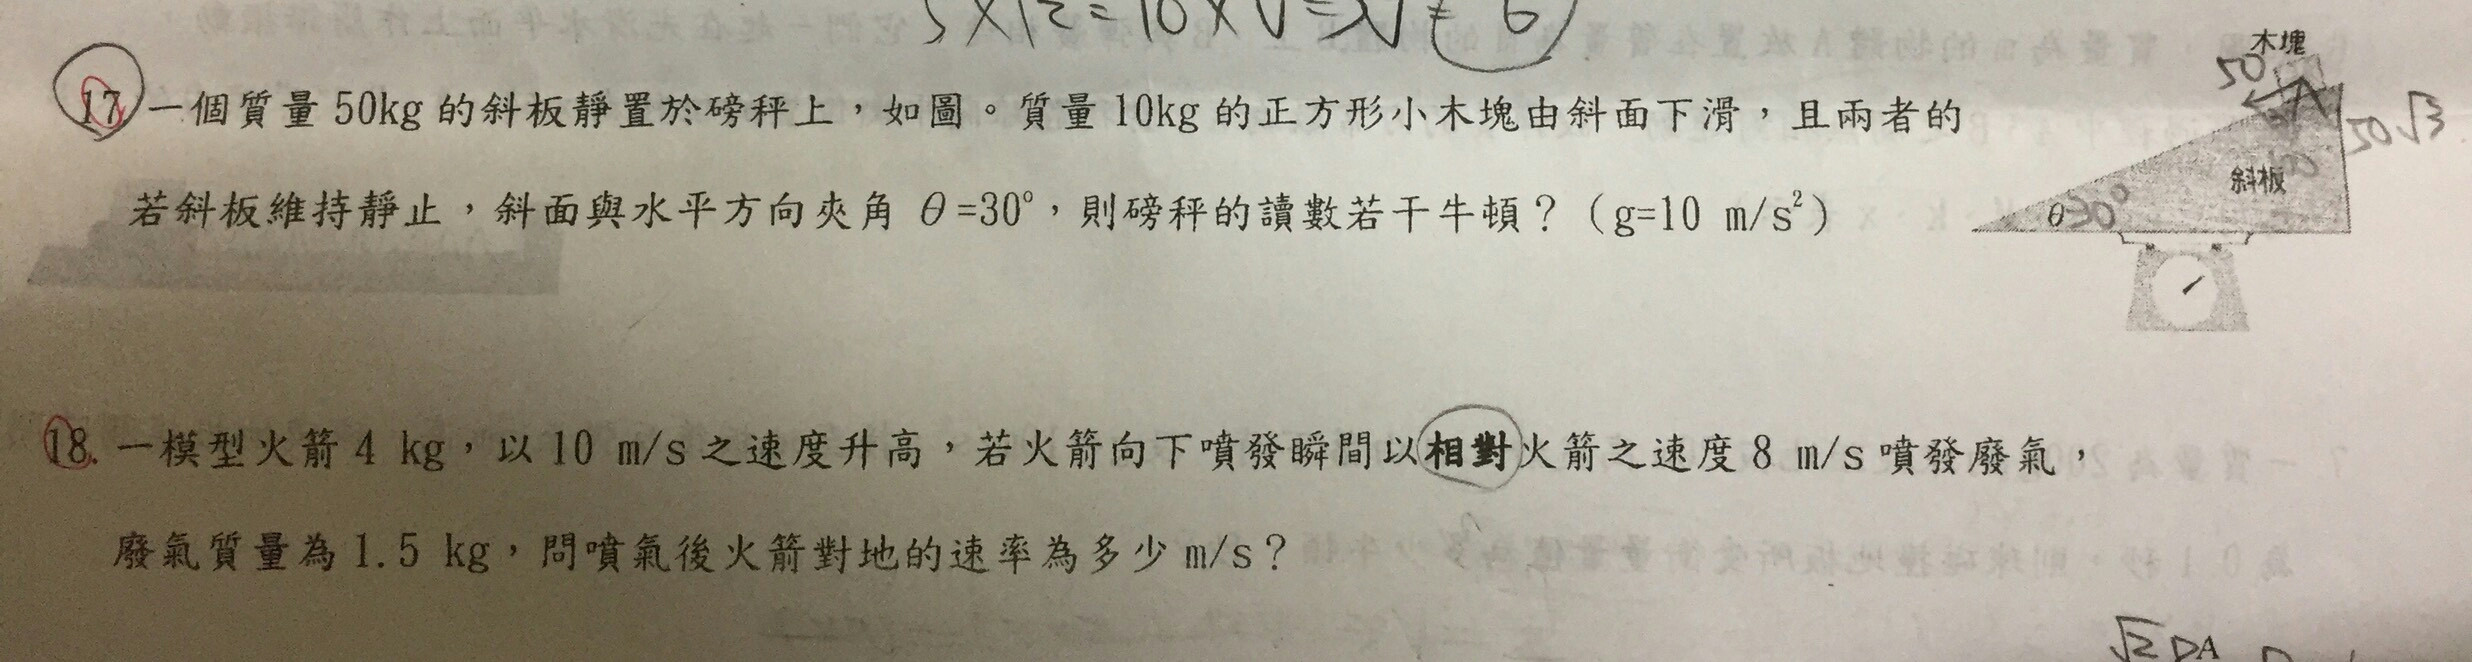 5×12=10×V⇒V=6
木塊
50
17. 一個質量 50kg 的斜板靜置於磅秤上，如圖。質量 10kg 的正方形小木塊由斜面下滑，且兩者的
50√3
斜板
若斜板維持靜止，斜面與水平方向夾角 θ=30°，則磅秤的讀數若干牛頓？（g=10 m/s²）
θ30°
18. 一模型火箭 4 kg，以 10 m/s 之速度升高，若火箭向下噴發瞬間以相對火箭之速度 8 m/s 噴發廢氣，
廢氣質量為 1.5 kg，問噴氣後火箭對地的速率為多少 m/s？